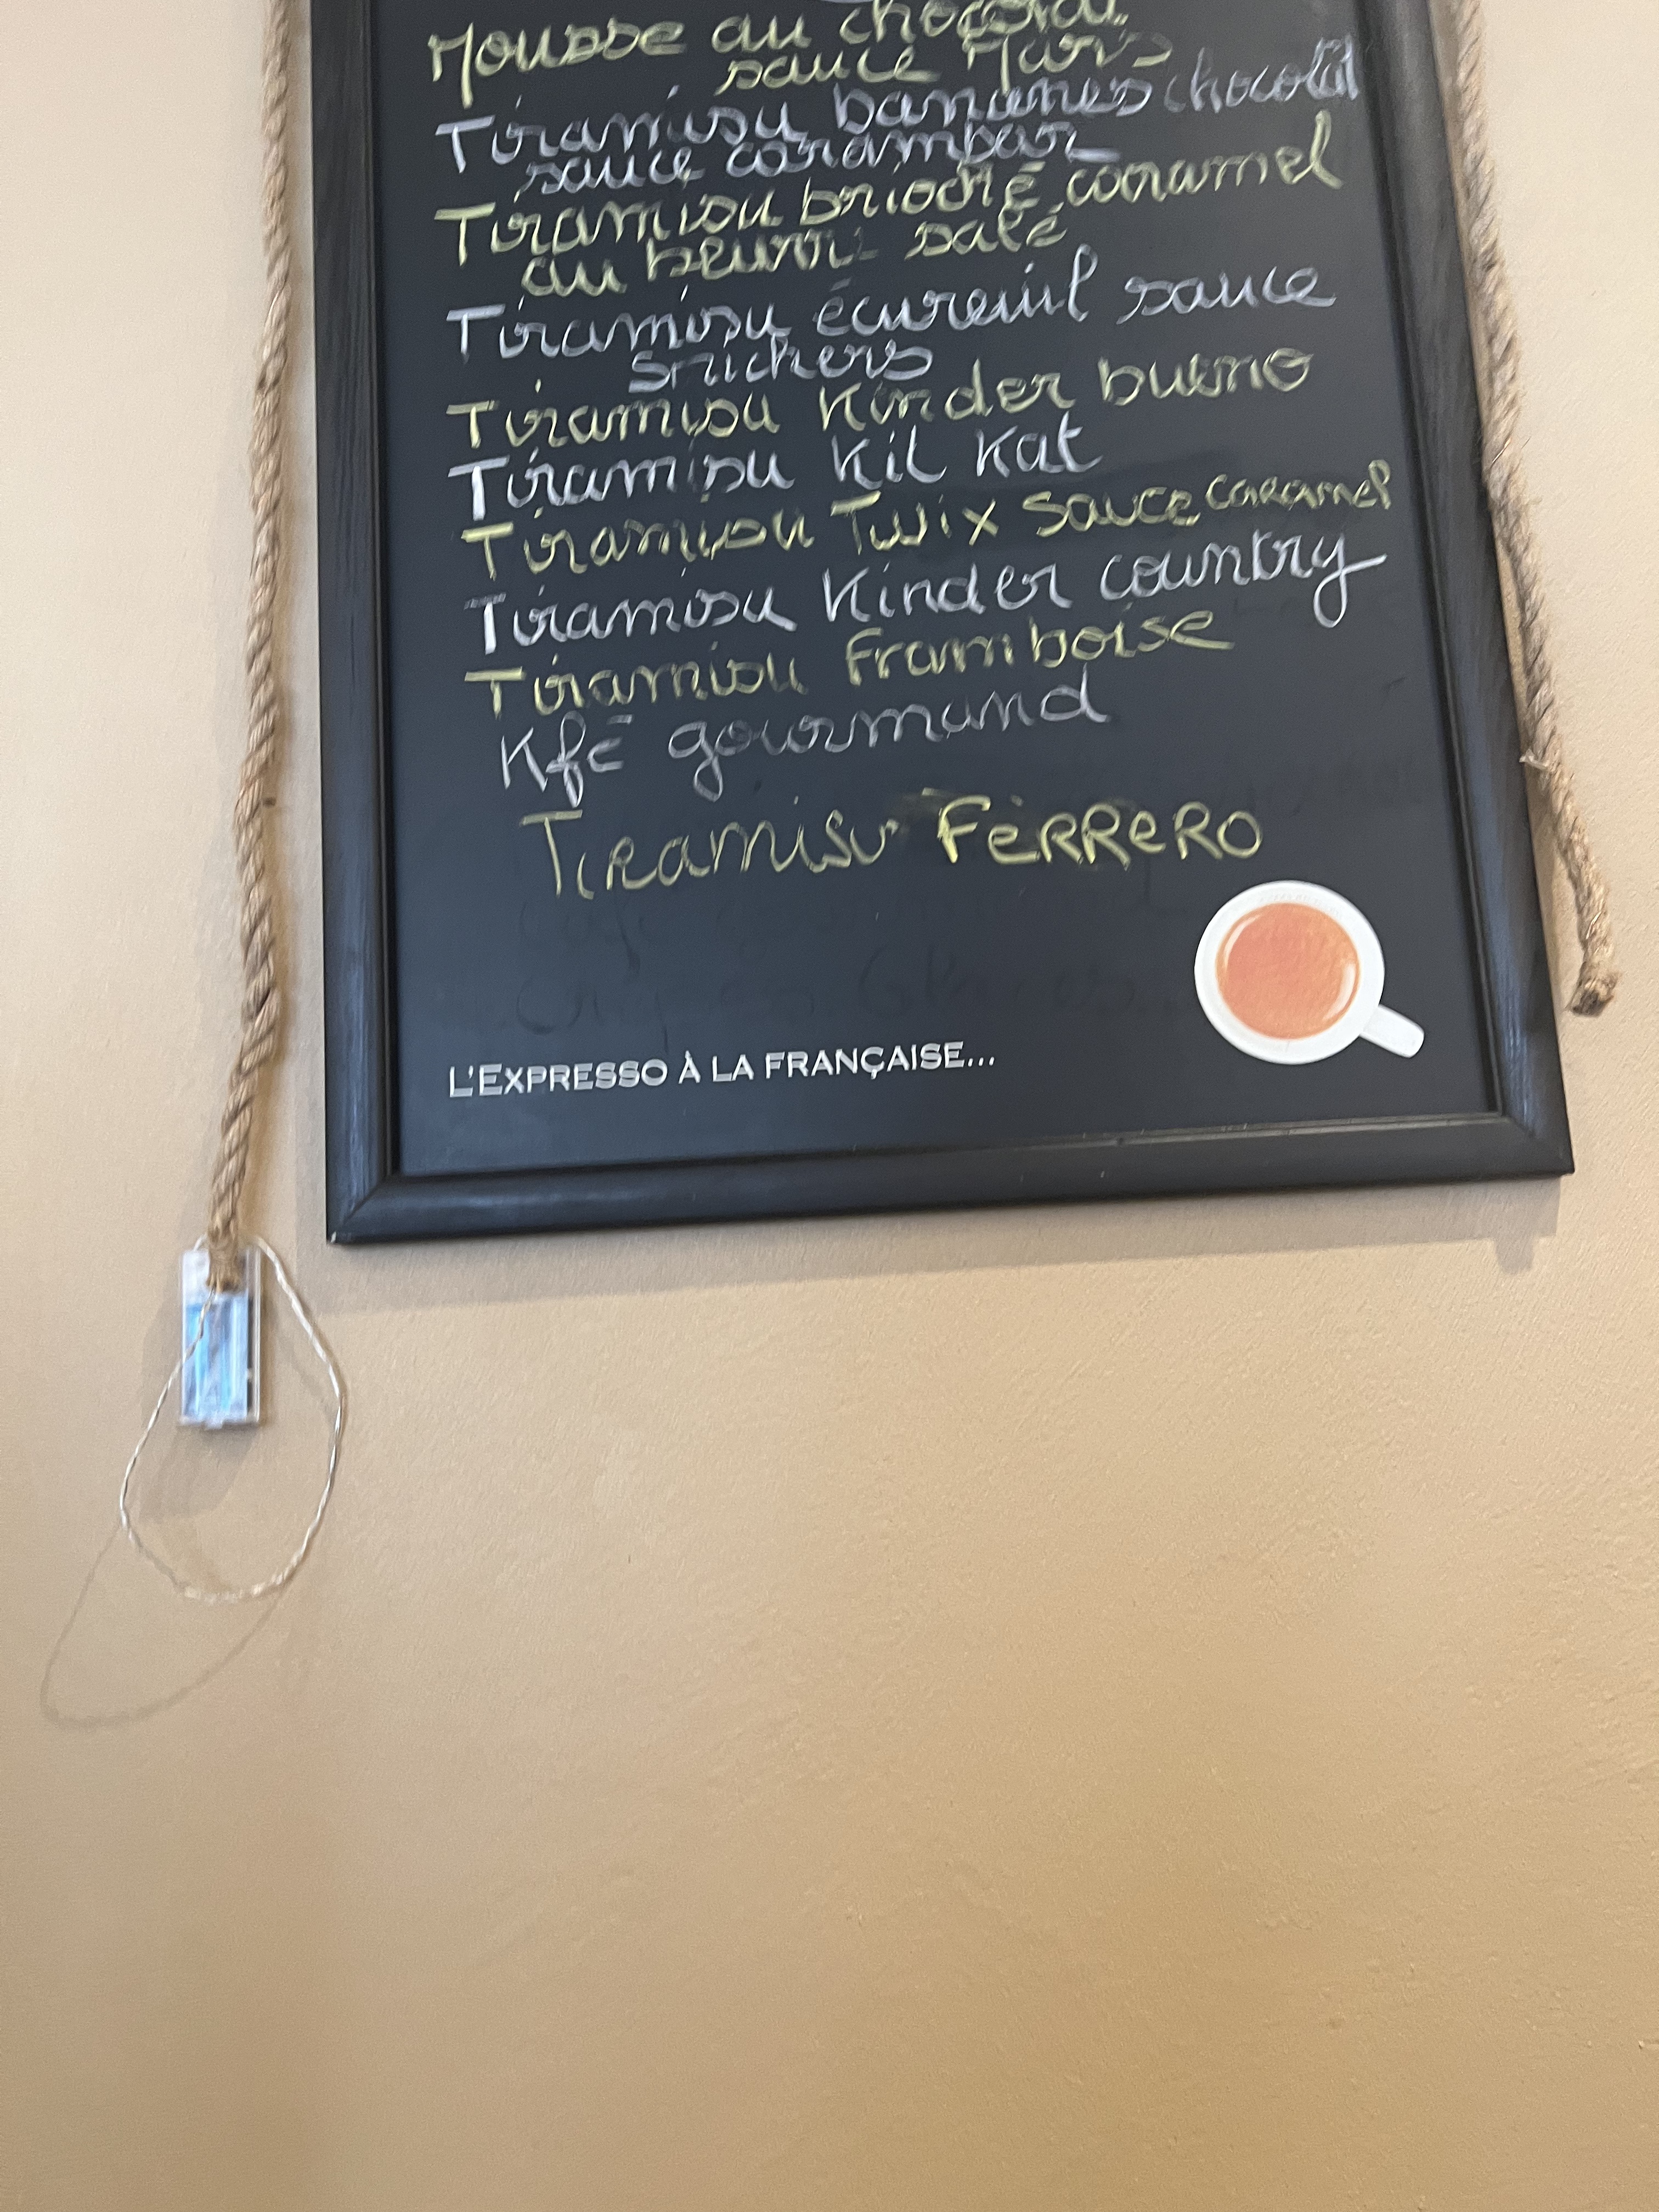 Mousse au chocolat
sauce Mars
Tiramisu bananes chocolat
sauce carambar
Tiramisu brioché caramel
au beurre salé
Tiramisu écureuil sauce
snickers
Tiramisu Kinder bueno
Tiramisu Kit Kat
Tiramisu Twix sauce caramel
Tiramisu Kinder country
Tiramisu framboise
Kfé gourmand
Tiramisu FERRERO
L'EXPRESSO À LA FRANÇAISE...